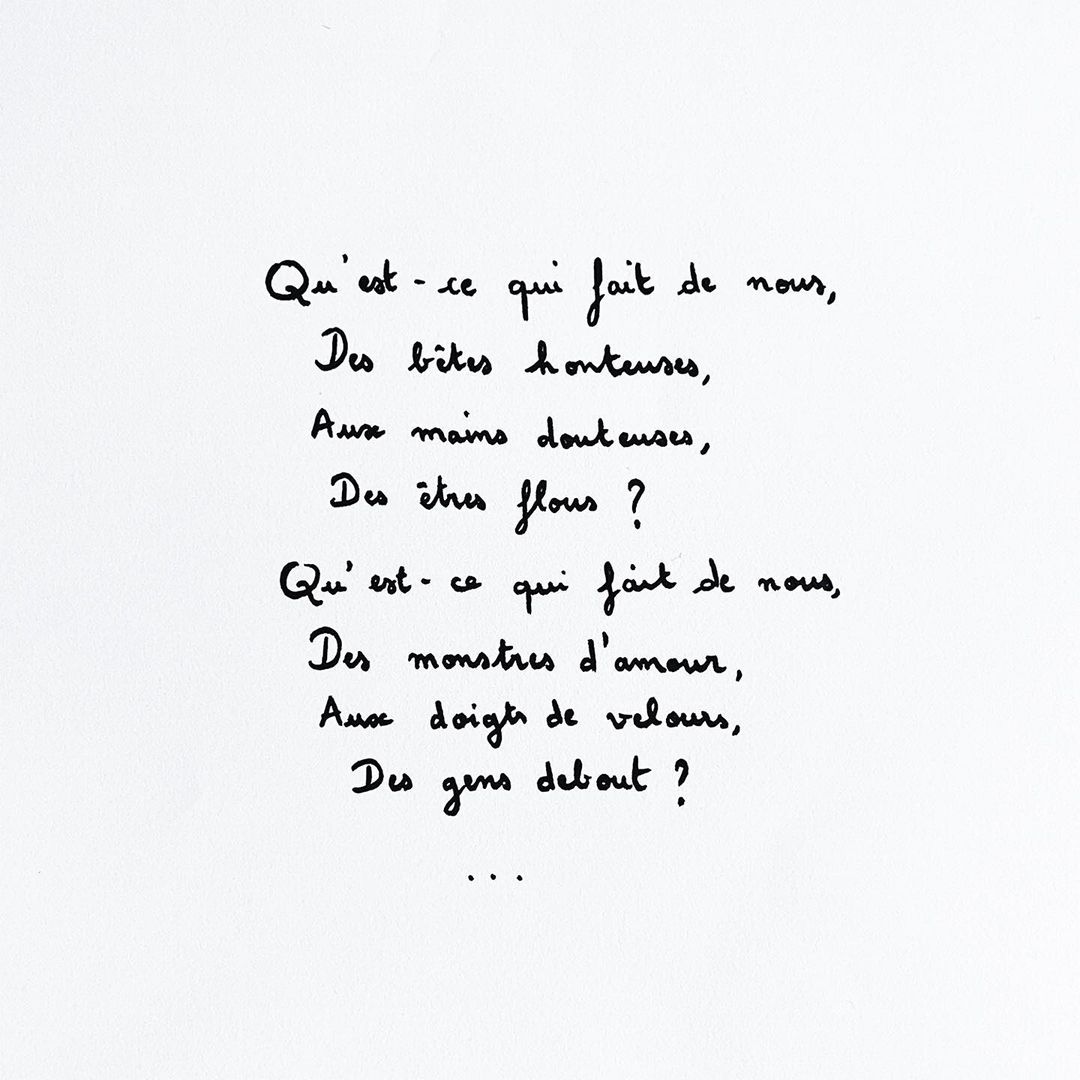 Qu'est-ce qui fait de nous,
Des bêtes honteuses,
Aux mains douteuses,
Des êtres flous ?
Qu'est-ce qui fait de nous,
Des monstres d'amour,
Aux doigts de velours,
Des gens debout ?
...